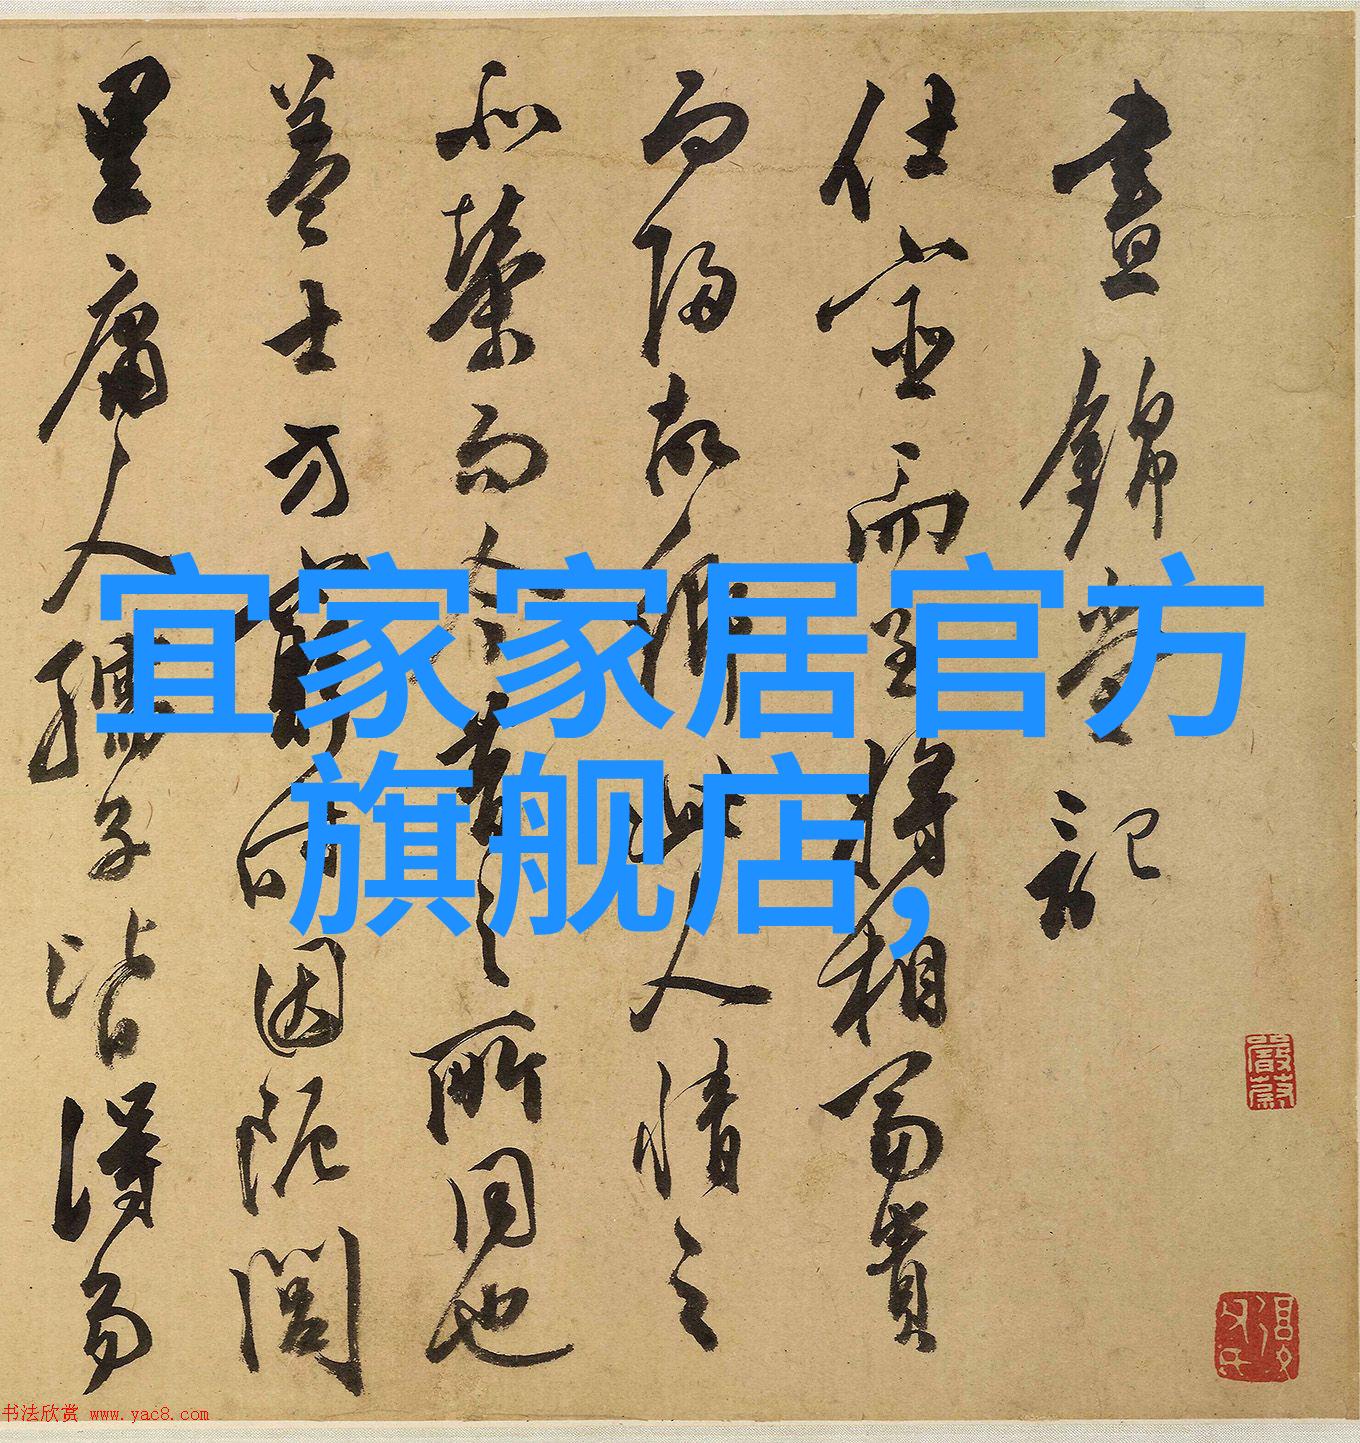 晝錦堂記
仕宦而至將相富貴
而歸故鄉此人情之
所榮而今昔之所同也
蓋士方窮時困阨閭
里庸人孺子皆得易
宜家家居官方
旗舰店,
书法欣赏 www.yac8.com